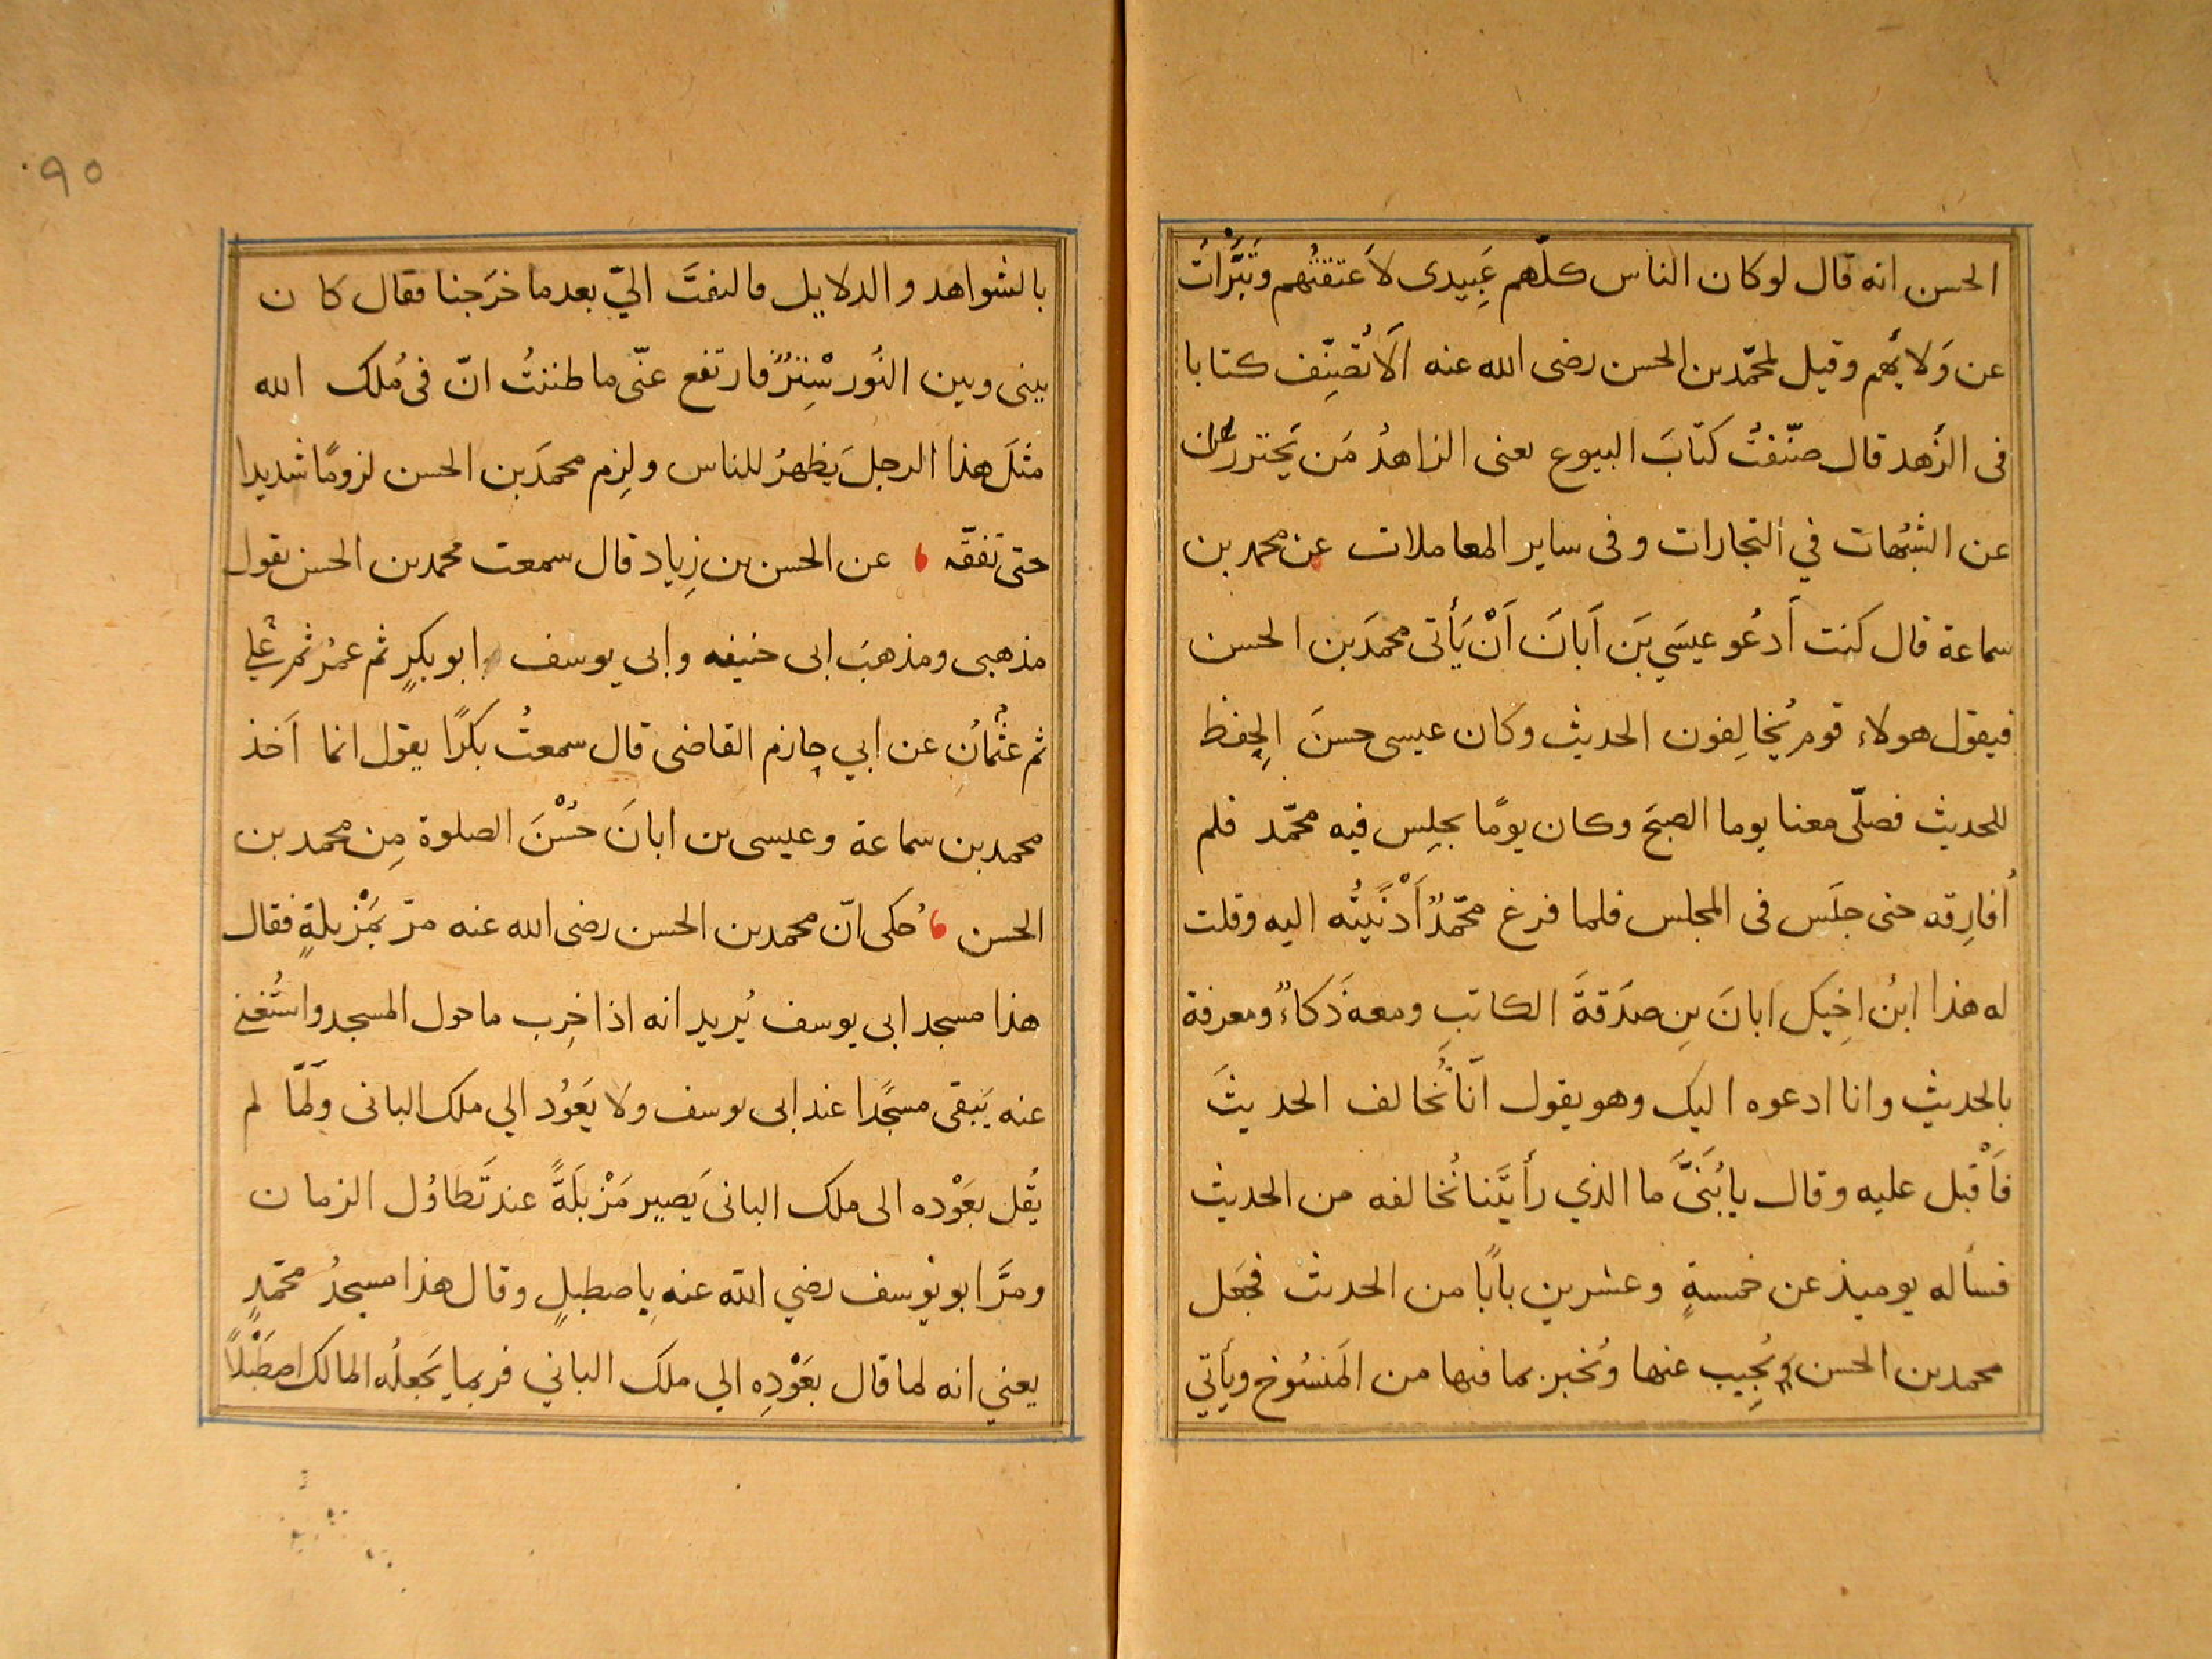 الحسن انه قال لو كان الناس كلّهم عَبِيدى لاَعتقتُهم وتَبَّرْأتُ
عن وَلايهم وقيل لمحمّد بن الحسن رضى الله عنه اَلاَ تُصَنِّف كتابا
فى الزُهد قال صنّفتُ كتابَ البيوع يعنى الزاهدُ مَن يَحترز عن
عن الشبُهات في التجارات وفى ساير المعاملات عن محمد بن
سماعة قال كنت اَدعُو عيسَي بَن اَبانَ اَنْ يَأتى محمدَ بن الحسن
فيقول هولاء قوم يُخالِفون الحديث وكان عيسى حسنَ الحِفظ
للحديث فصلّى معنا يوما الصبحَ وكان يومًا يجلِس فيه محمّد فلم
اُفارِقه حتى جلَس فى المجلس فلما فرغ محمّدٌ اَدْنَيتُه اليه وقلت
له هذا ابنُ اخِيك ابانَ بنِ صدَقةَ الكاتبِ ومعه ذَكاءٌ ومعرفة
بالحديث وانا ادعوه اليك وهو يقول انّا نُخالف الحديثَ
فَاَقْبل عليه وقال يا بُنَىَّ ما الذي رأيتَنا نُخالفه من الحديث
فسأله يوميذ عن خمسةٍ وعشرين بابًا من الحديث فجَعل
محمد بن الحسن يُجِيب عنها ويُخبر بما فيها من المَنسُوخ ويأتي
بالشواهد والدلايل فالتفتَ اليّ بعد ما خرَجنا فقال كان
بينى وبين النُور سْتِرٌ فارتفع عنّى ما ظننتُ انّ فى مُلك الله
مثلَ هذا الرجل يَظهرُ للناس ولزِم محمدَ بن الحسن لزومًا شديدا
حتى تفقّه عن الحسن بن زِياد قال سمعت محمد بن الحسن يقول
مذهبى ومذهبَ ابى حنيفه وابى يوسف ابو بكرٍ ثم عمرُ ثم علي
ثم عثْمانُ عن ابي حازم القاضى قال سمعتُ بكرًا يقول انما اَخذ
محمد بن سماعة وعيسى بن ابانَ حُسْنَ الصلوة مِن محمد بن
الحسن حُكى انّ محمد بن الحسن رضى الله عنه مرّ بمَزْبلةٍ فقال
هذا مسجد ابى يوسف يُريد انه اذا خرِب ما حول المسجد واستُغنى
عنه يَبقى مسجدًا عند ابى يوسف ولا يَعوُد الي ملك البانى ولَمّا لم
يقُل بعَوْده الى ملك البانى يَصير مَزْبَلَةً عند تَطاوُل الزمان
ومرَّ ابو يوسف رضي الله عنه بِاصطبلٍ وقال هذا مسجدُ محمّدٍ
يعني انه لما قال بعَوْدِه الي ملك الباني فربما يَجعلُه المالك اصطَبْلاً
٩٥